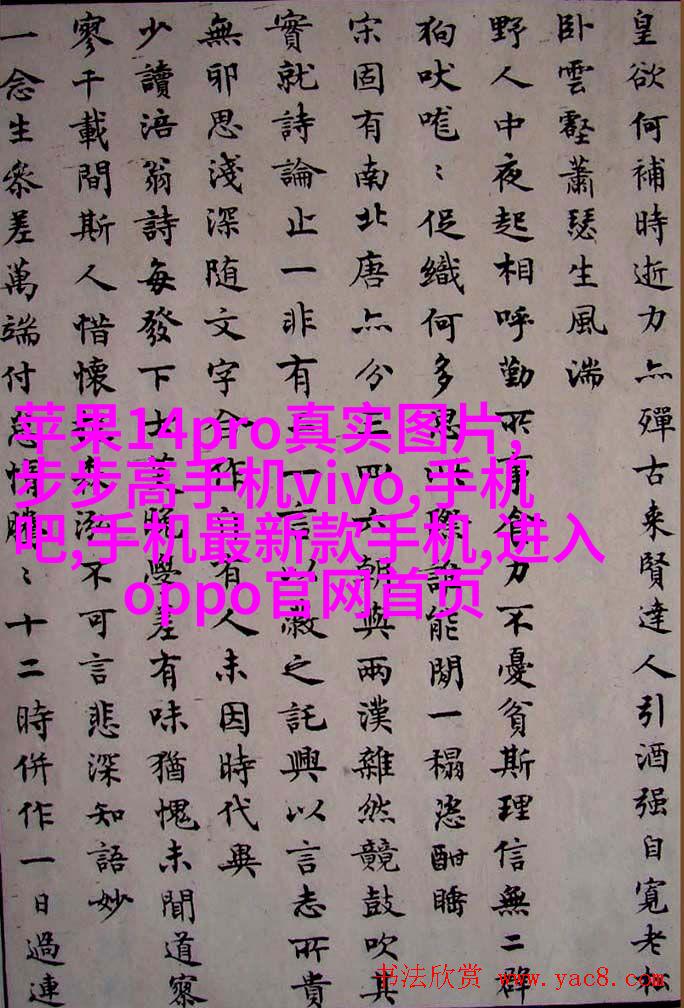 皇欲何補時逝力亦殫古来賢達人引酒强自寬老
卧雲壑蕭瑟生風湍
野人中夜起相呼勤所事食力不憂貧斯理信無二群
狗吠嘊〻促織何多思語能閧一榻恣酣睡
宋固有南北唐亦分三四六朝與兩漢雜然競鼓吹其
實就詩論止一非有二一言以蔽之託興以言志所貴
無邪思淺深随文字今作有人未因時代異
少讀涪翁詩每發下士晚學差有味猶愧未聞道寥
寥千載間斯人惜懷森泓不可言悲深知語妙
一念生參差萬端付情〻十二時併作一日過連
苹果14pro真实图片,
步步高手机vivo,手机
吧,手机最新款手机,进入
oppo官网首页
书法欣赏 www.yac8.com